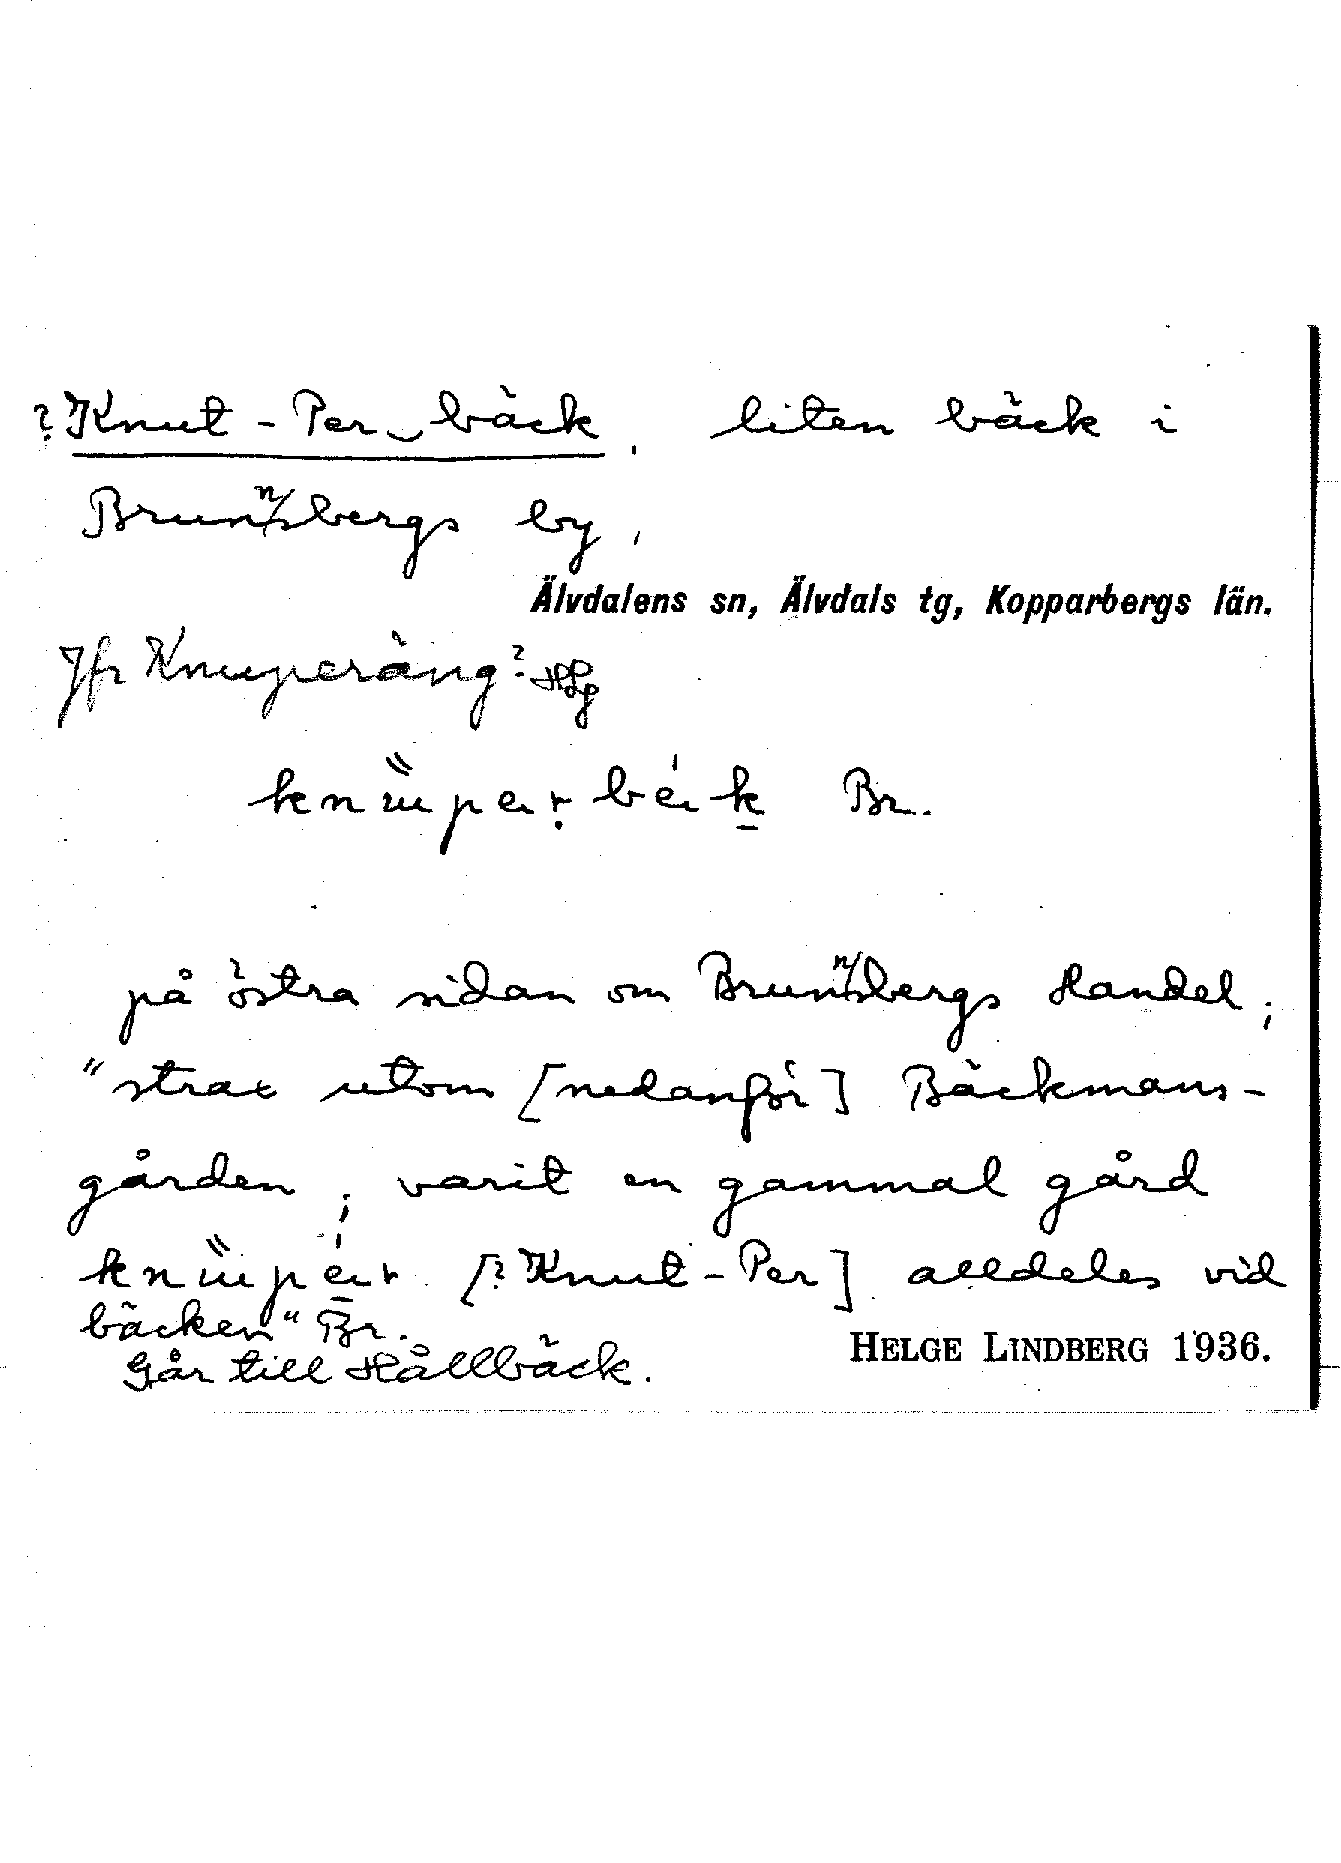 ? Knut-Per‿bäck, liten bäck i
Brunnsbergs by,
Älvdalens sn, Älvdals tg, Kopparbergs län.
Jfr Knuperäng?
knüper béik Br.
på östra sidan om Brunnsbergs Handel;
"strax utom [nedanför] Bäckmans-
gården; varit en gammal gård
[? Knut-Per] alldeles vid
bäcken" Br.
Går till Hållbäck.
HELGE LINDBERG 1936.